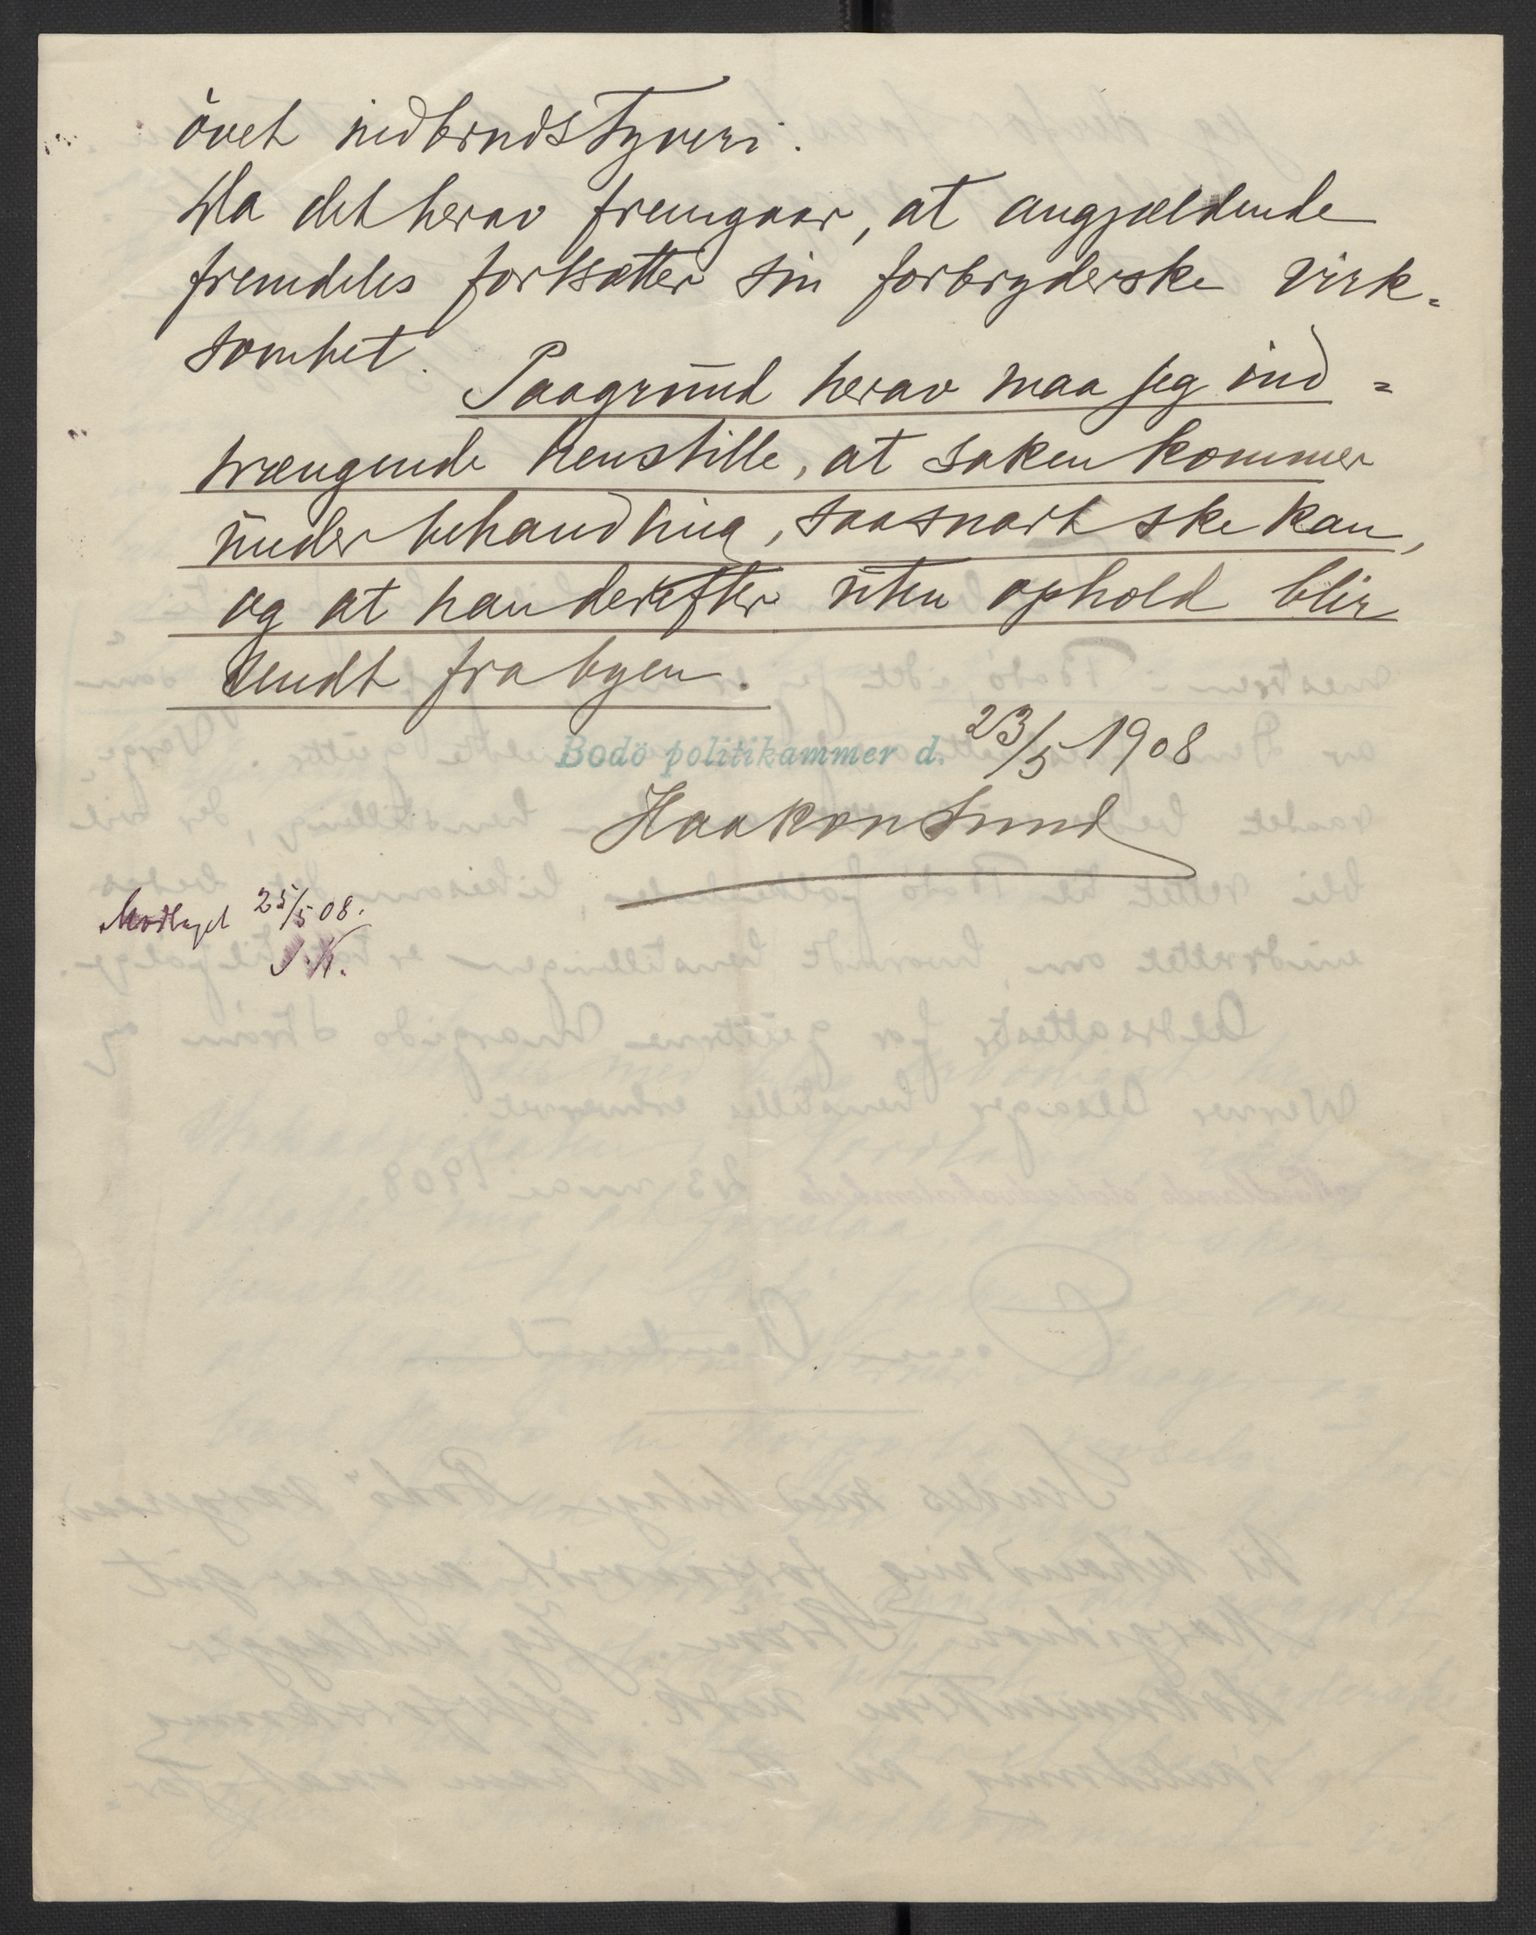 övet indbrudstyveri.
Da det herav fremgaar, at angjældende
fremdeles fortsætter sin forbryderske virk=
somhet.
Paagrund herav maa jeg ind=
trængende henstille, at saken kommer
under behandling, saasnart ske kan,
og at han derefter uten ophold blir
sendt fra byen.
Bodö politikammer d. 23/5 1908
Haakon Lund
Modtaget 25/5 08.
J.K.